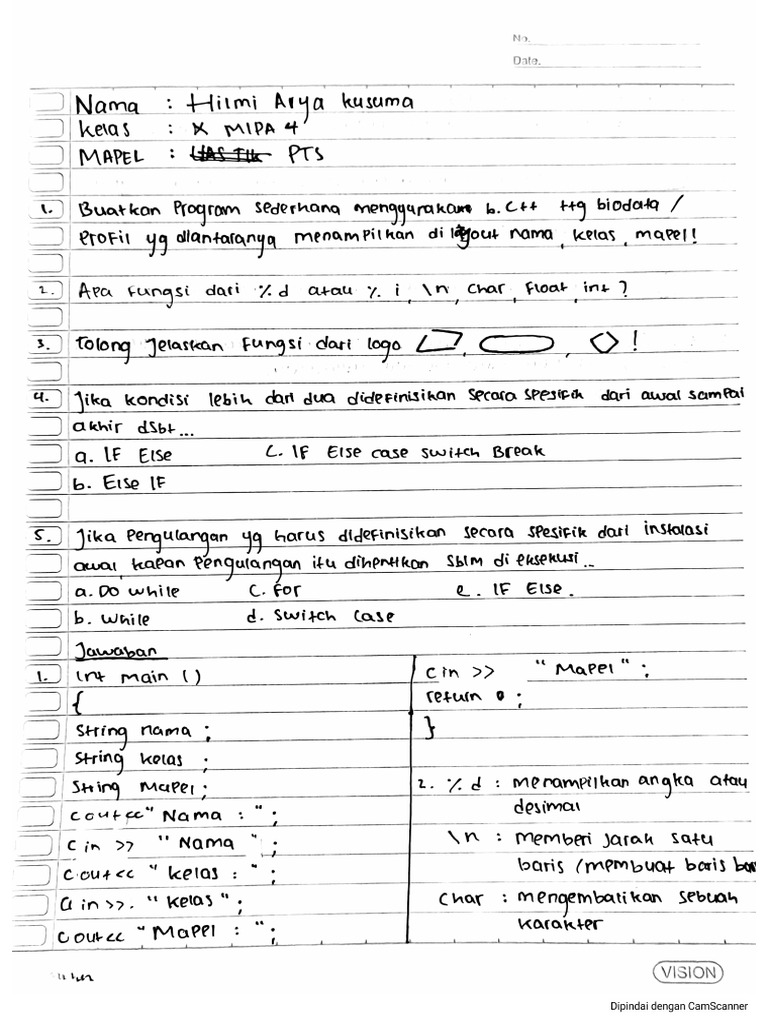 No.
Date.
Nama : Hilmi Arya Kusuma
Kelas : X MIPA 4
MAPEL : UAS TIK PTS
1. Buatkan Program sederhana menggunakan b. C++ ttg biodata /
Profil yg diantaranya menampilkan di layout nama, kelas, mapel!
2. Apa fungsi dari %d atau % i, \n, char, Float, int ?
3. Tolong Jelaskan Fungsi dari logo , , !
4. Jika kondisi lebih dari dua didefinisikan secara spesifik dari awal sampai
akhir dsbt...
a. IF Else C. IF Else case switch Break
b. Else IF
5. Jika Pengulangan yg harus didefinisikan secara spesifik dari instalasi
awal, kapan Pengulangan itu dihentikan sblm di eksekusi...
a. Do while C. For e. IF Else.
b. while d. switch case
Jawaban
1. Int main ()
{
String nama ;
String kelas ;
String Mapel ;
cout << "Nama : " ;
cin >> "Nama " ;
cout << "kelas : " ;
cin >>. "kelas" ;
cout << "Mapel : " ;
cin >> "Mapel" ;
return 0 ;
}
2. %d : menampilkan angka atau
desimal
\n : memberi jarak satu
baris (membuat baris bar
char : mengembalikan sebuah
karakter
VISION
Dipindai dengan CamScanner